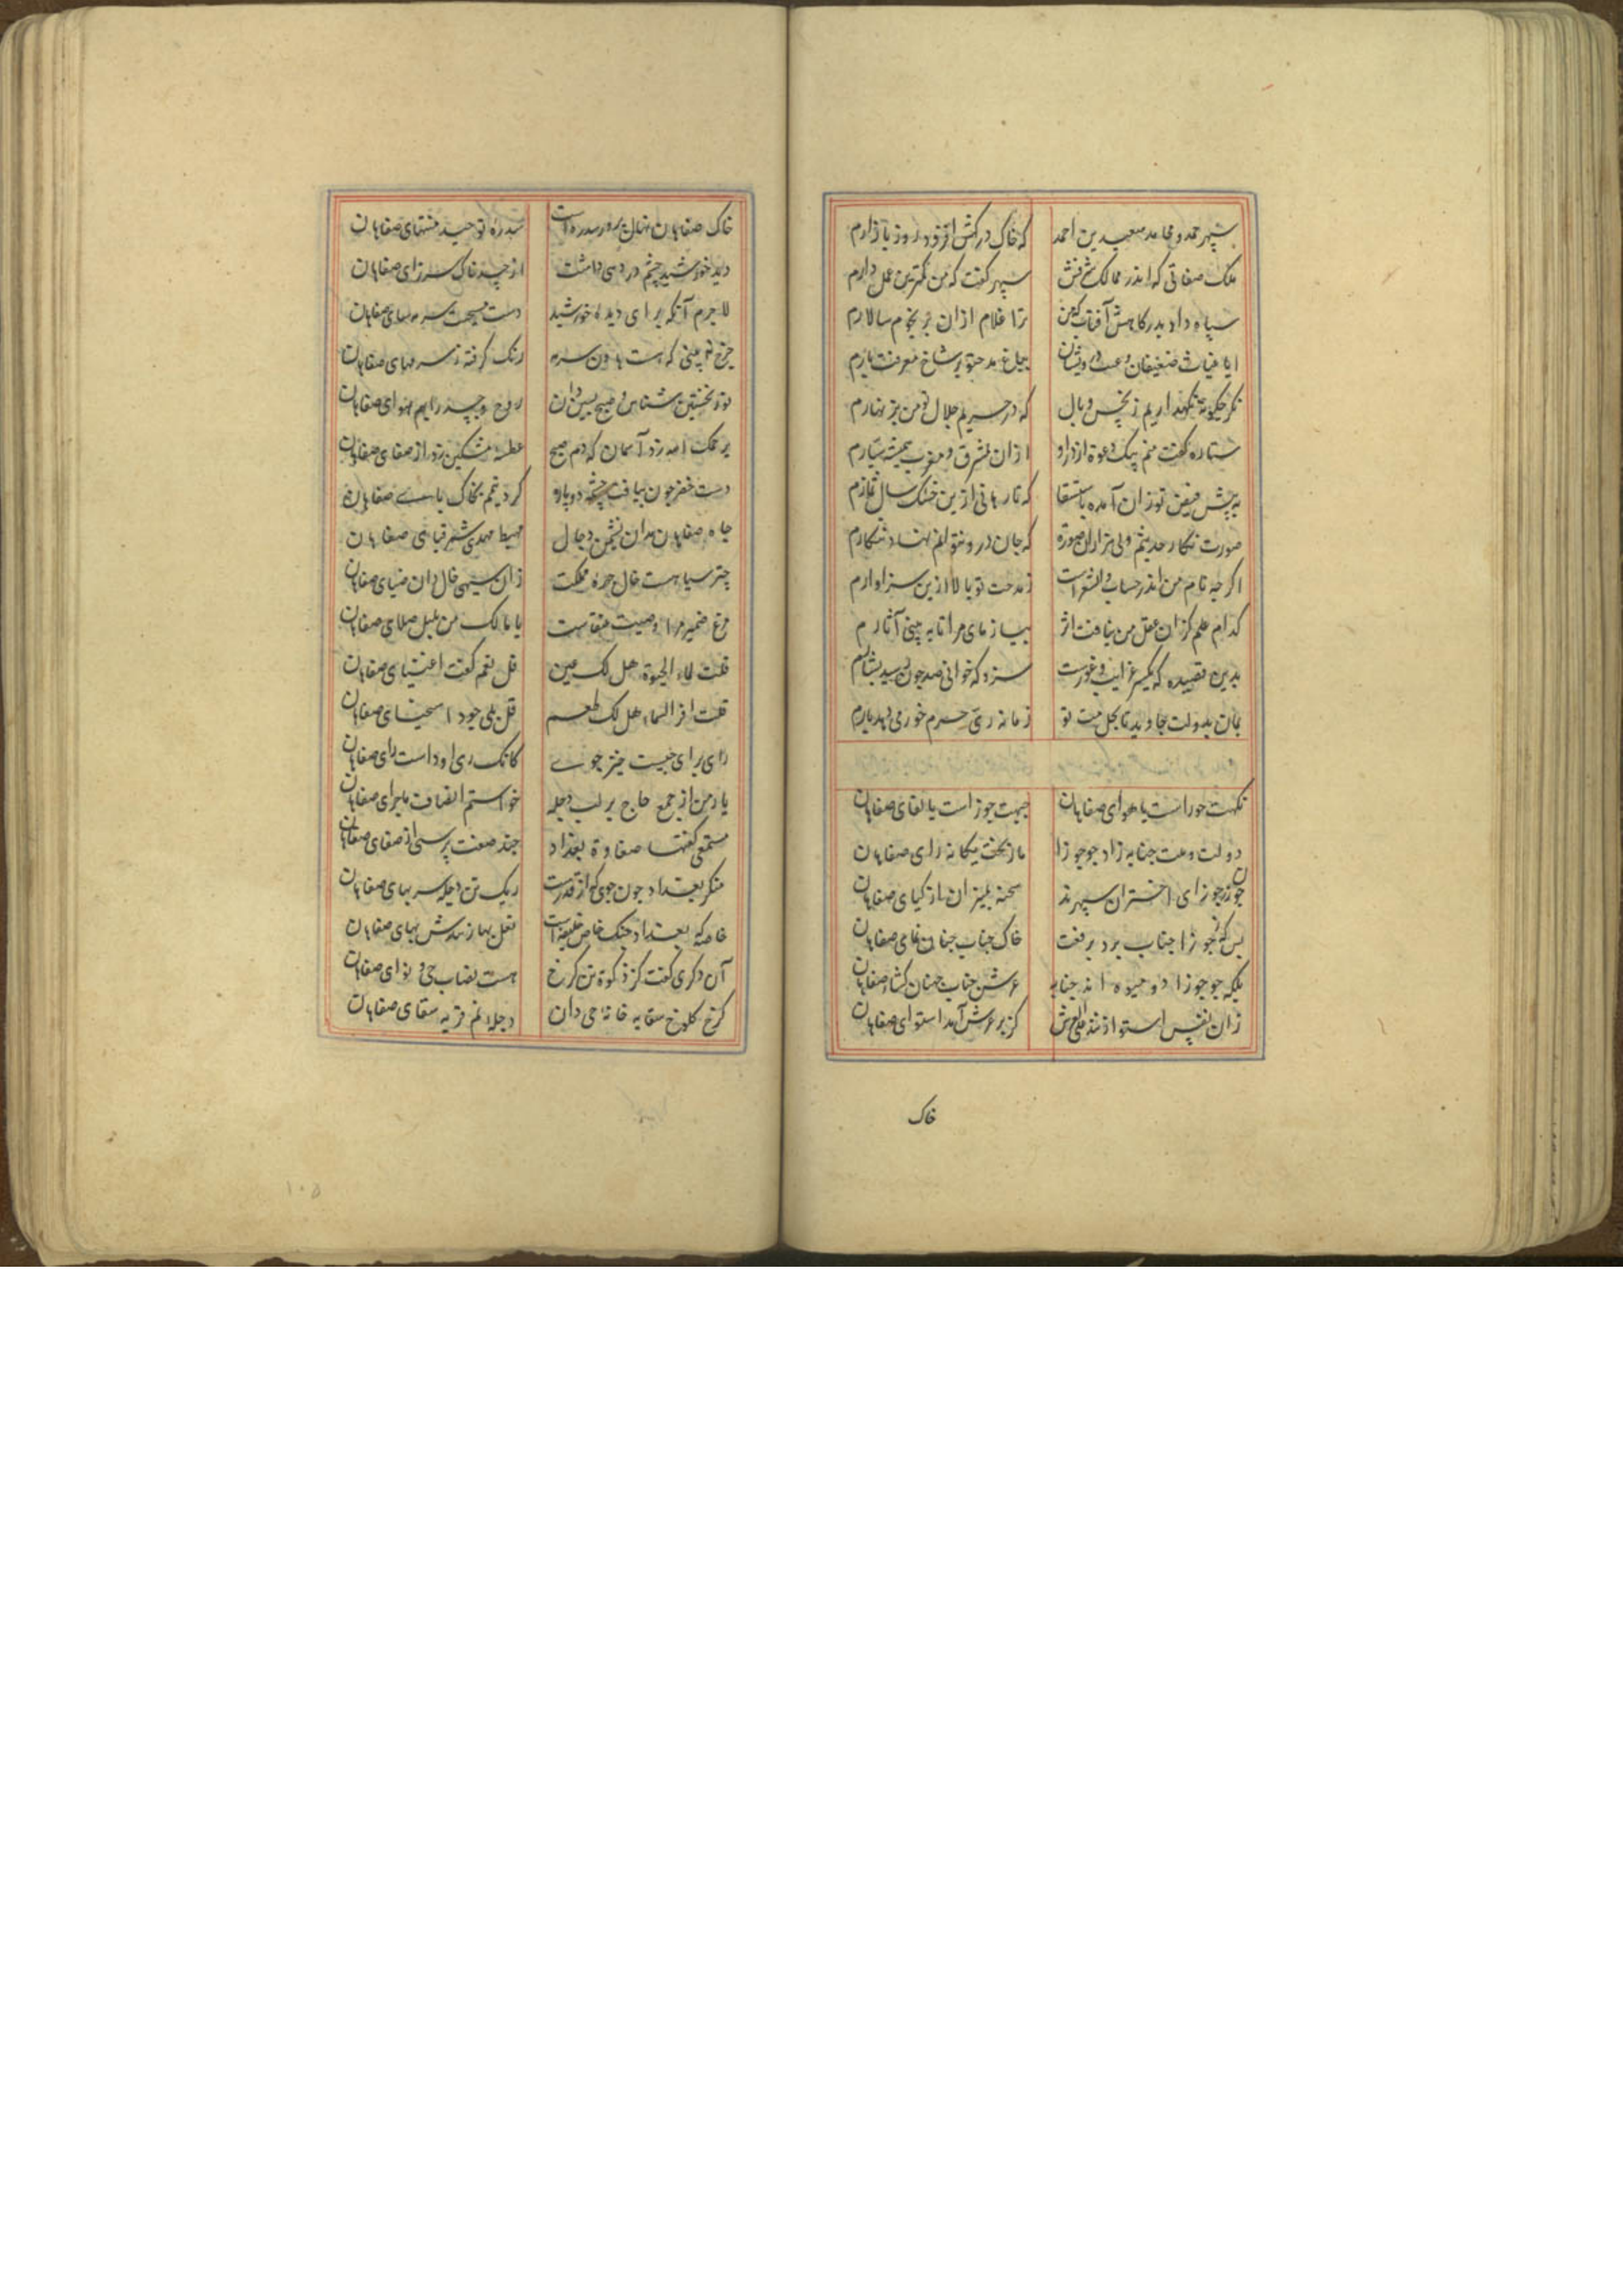 سپهر حمد و محامد سعید بن احمد که خاک درکش افزود روز بازارم
ملک صفاتی که اندر ممالک شرفش سپهر گفت که من کمترین عمل دارم
سپاه داد بدرگاهش آفتاب کهن ترا غلام ازان بر نجوم سالارم
ایا غیاث ضعیفان و غیث درویشان بباغ مدح تو بر شاخ معرفت بارم
نگر چگونه نگهداریم ز نحس وبال که در حریم جلال تو من بزنهارم
ستاره گفت منم پیک دعوة از در او ازان بمشرق و مغرب همیشه سیارم
به پیش فیض تو زان آمده باستسقا که تا رهانی ازین خشک سال تیمارم
صورت نکار حدیثم ولی هزاران صورة که جان درو نتوانم نهاد ننکارم
اگرچه نام من اندر حساب والشعراست ز مدحت تو بالا ازین سزاوارم
کدام علم کزان عقل من نیافت اثر بیازمای مرا تا به بینی آثارم
بدین قصیده که یکسر غرایب و غررست سزد که خوانی صد چون لبید بشارم
بمان بدولت جاوید تا بکل منت تو زمانه زی حرم خرمی دهد بارم
نکهت حوراست یا هوای صفاهان جبهت جوزاست یا لقای صفاهان
دولت و ملت جنابه زاد چو جوزا مادر بخت یکانه زای صفاهان
چون زر جوزایی اختران سپهرند سخته بمیزان از کیای صفاهان
بس که جوزا جناب برد برفعت خاک جناب جنان نمای صفاهان
بلکه چو جوزا دو میوه اند جنابه عرش و جناب جهان کشای صفاهان
زان نفس استوا زنند علی العرش کز بر عرش آمد استوای صفاهان
خاک
خاک صفاهان نهال پرور سدره است سدره توحید منتهای صفاهان
دید خورشید چشم درد همی داشت از حسد خاک سرمه زای صفاهان
لاجرم آنکه برای دیده خورشید دست مسیحست سرمه سای صفاهان
چرخ نه بینی که هست هاون سرمه رنک گرفته ز سرمهای صفاهان
نور نخستین شناس و صبح پسین دان روح و جسد را بهم هوای صفاهان
بر محک احمر زد آسمان که دم صبح عطسه مشکین زد از صفای صفاهان
دست خضر چون نیافت چشمه دوباره کرد تیمم بخاک پای صفاهان
چاه صفاهان مدان نشیمن دجال مهبط مهدی شمر فنای صفاهان
چتر سیاهست خال چهره مملکت زان سیهی خال دان ضیای صفاهان
مرغ ضمیر مرا وصیت عنقاست یا مالک من بلبل صلای صفاهان
قلت لماء الحیوة هل لک عین قل نعم گفت اعتنای صفاهان
قلت افز السماء هل لک طعم قل بلی جود اسخیای صفاهان
رای بری چیست خیز جوی بجی کانک ری او داشت رای صفاهان
یار من از جمع حاج بر لب دجله خواستم انصاف ماجرای صفاهان
مستمعی گفتها صفاوة بغداد چند صفت پرسی از صفای صفاهان
منکر بغداد چون شوی که از قدرست ریک بن دجله سر بهای صفاهان
خاصه که بغداد خنک خاص خلیفه است نعل بهای زیبدش بهای صفاهان
آن دکری گفت کز زکوة تن کرخ هست نصاب جی و نوای صفاهان
کرخ کلوخ سقایه خانه جی دان دجله نم قربه سقای صفاهان
۱۰۵